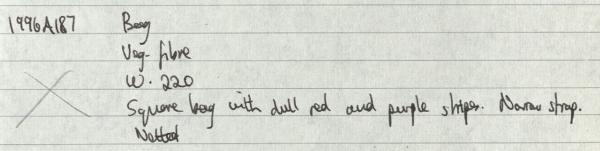 1996A187 Bag
Veg. fibre
W. 220
Square bag with dull red and purple stripes. Narrow strap.
Netted